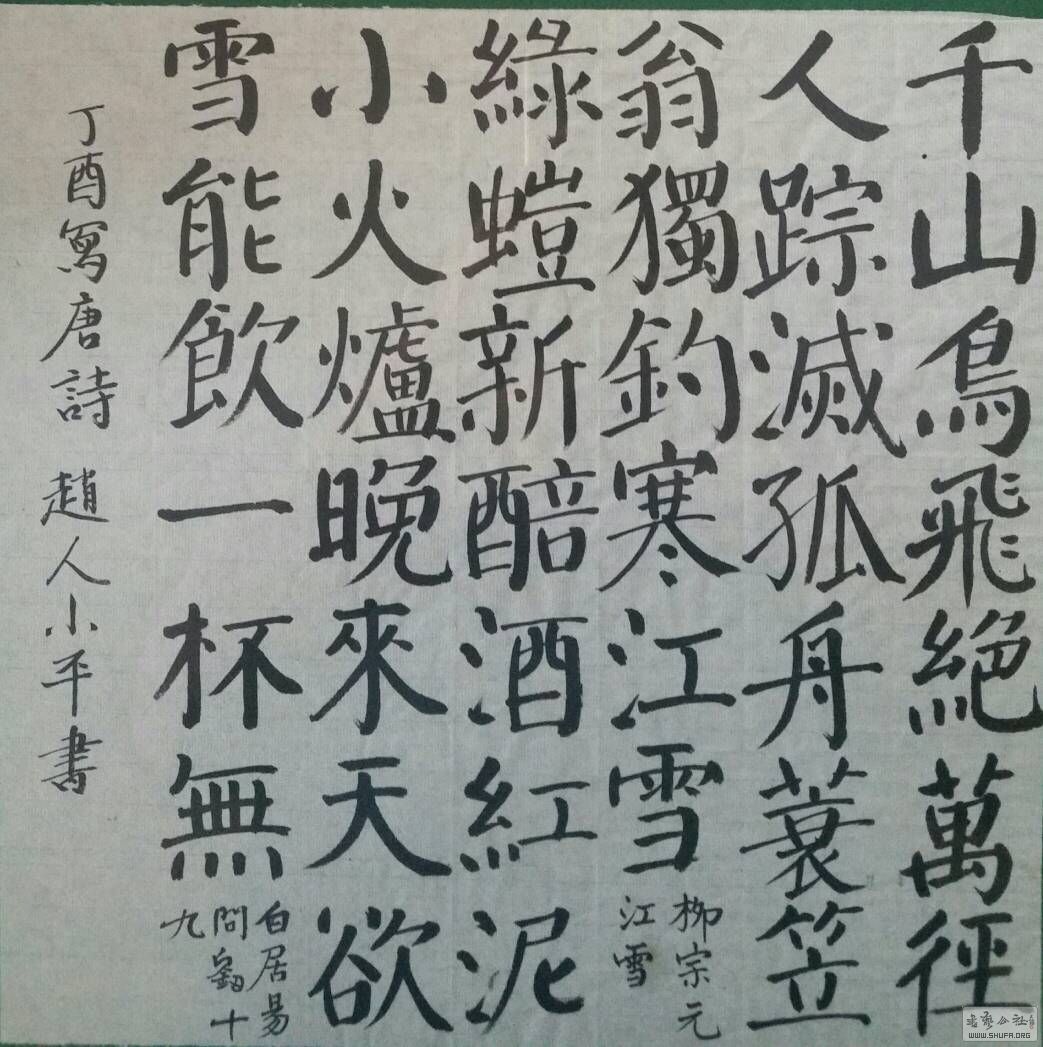 千山鳥飛絕萬徑
人踪滅孤舟蓑笠
翁獨釣寒江雪
柳宗元
江雪
綠螘新醅酒紅泥
小火爐晚來天欲
雪能飲一杯無
白居易
問劉十
九
丁酉寫唐詩 趙人小平書
WWW.SHUFA.ORG